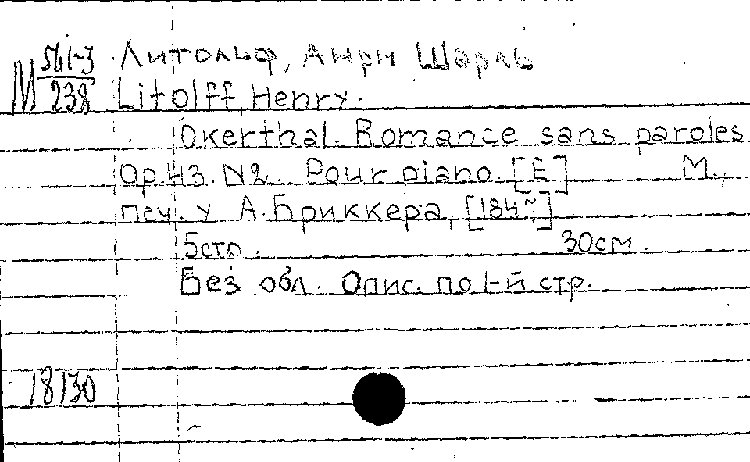 М 561-3 Литольф, Анри Шарль
238 Litolff Henry.
Okerthal. Romance sans paroles
Op.43. N2. Pour piano. [E] М.,
печ. у А. Бриккера, [184~]
5стр. 30см.
Без обл. Опис. по 1-й стр.
18130